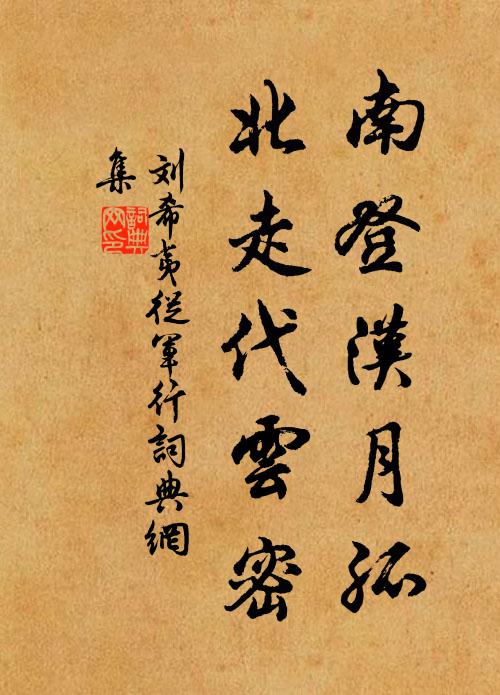 南登漢月孤
北走代雲密
刘希夷從軍行詞典網
集
詞典
网印